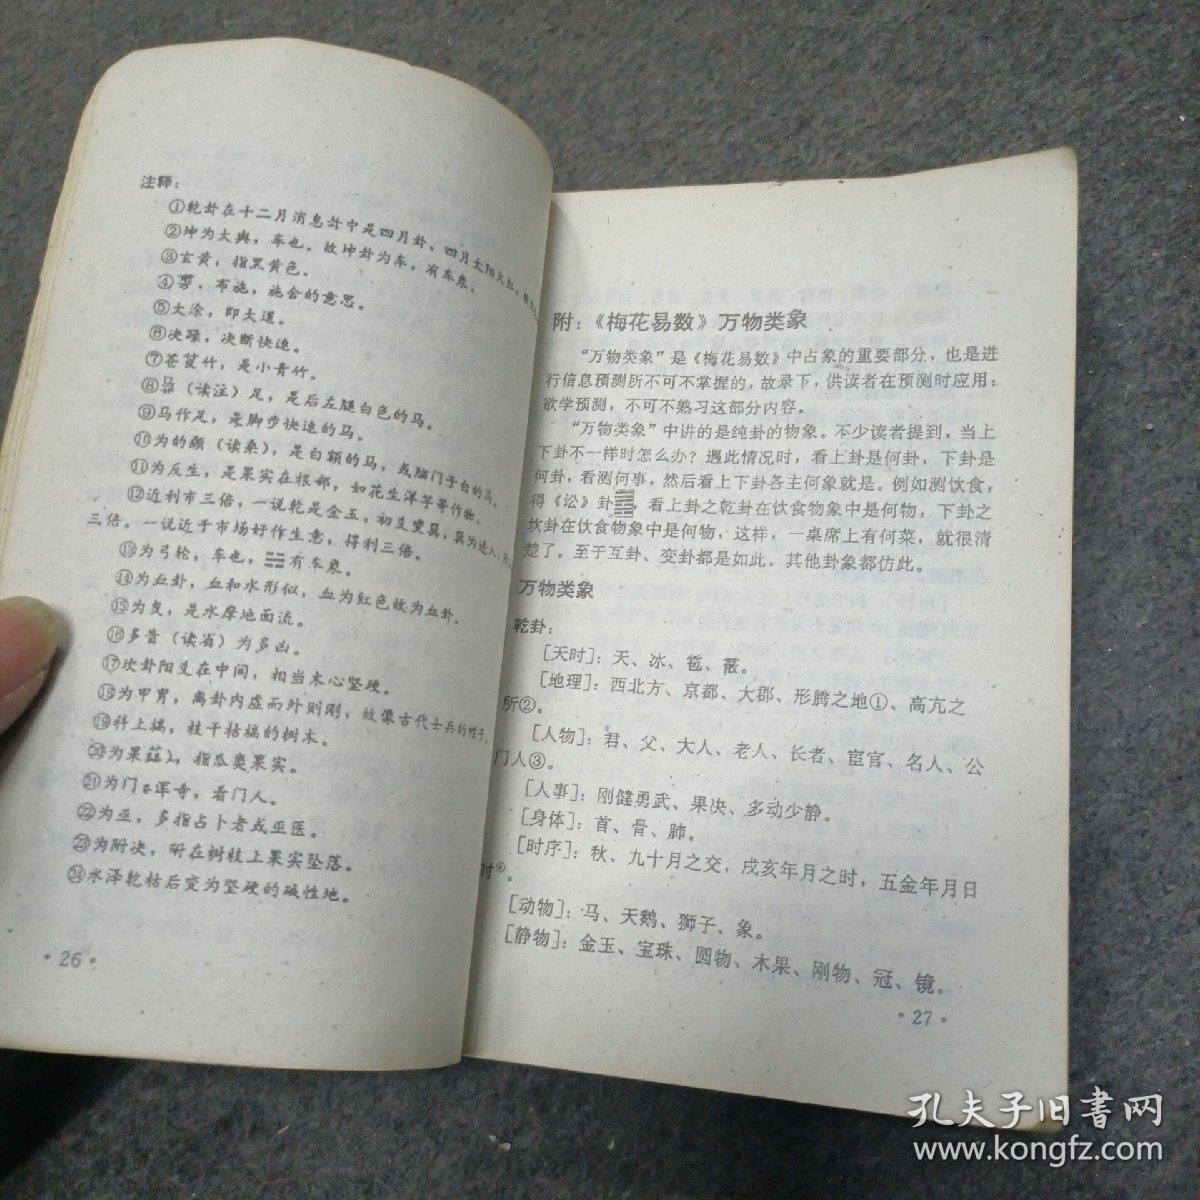 注释：
①乾卦在十二月消息卦中是四月卦，四月太阳火红，
②坤为大舆，车也。故坤卦为车，有车象。
③玄黄，指黑黄色。
④旉，布施，施舍的意思。
⑤大涂，即大道。
⑥决躁，决断快速。
⑦苍筤竹，是小青竹。
⑧馵（读注）足，是后左腿白色的马。
⑨马作足，是脚步快速的马。
⑩为的颡（读桑），是白额的马，或脑门子白的马。
⑪为反生，是果实在根部，如花生洋芋等作物。
⑫近利市三倍，一说乾是金玉，初爻变巽，巽为进入，所
三倍。一说近于市场好作生意，得利三倍。
⑬为弓轮，车也，☵有车象。
⑭为血卦，血和水形似，血为红色故为血卦。
⑮为曳，是水摩地面流。
⑯多眚（读省）为多凶。
⑰坎卦阳爻在中间，相当木心坚硬。
⑱为甲胄，离卦内虚而外则刚，故像古代士兵的帽子。
⑲科上槁，枝干枯槁的树木。
⑳为果蓏，指瓜类果实。
㉑为门阍寺，看门人。
㉒为巫，多指占卜者或巫医。
㉓为附决，听在树枝上果实坠落。
㉔水泽乾枯后变为坚硬的碱性地。
·26·
附：《梅花易数》万物类象
“万物类象”是《梅花易数》中占象的重要部分，也是进
行信息预测所不可不掌握的，故录下，供读者在预测时应用；
欲学预测，不可不熟习这部分内容。
“万物类象”中讲的是纯卦的物象。不少读者提到，当上
下卦不一样时怎么办？遇此情况时，看上卦是何卦，下卦是
何卦，看测何事，然后看上下卦各主何象就是。例如测饮食，
得《讼》卦䷅，看上卦之乾卦在饮食物象中是何物，下卦之
坎卦在饮食物象中是何物，这样，一桌席上有何菜，就很清
楚了。至于互卦、变卦都是如此。其他卦象都仿此。
万物类象
乾卦：
［天时］：天、冰、雹、霰。
［地理］：西北方、京都、大郡、形腾之地①、高亢之
所②。
［人物］：君、父、大人、老人、长者、宦官、名人、公
门人③。
［人事］：刚健勇武、果决、多动少静。
［身体］：首、骨、肺。
［时序］：秋、九十月之交，戌亥年月之时，五金年月日
时④。
［动物］：马、天鹅、狮子、象。
［静物］：金玉、宝珠、圆物、木果、刚物、冠、镜。
·27·
孔夫子旧书网
www.kongfz.com